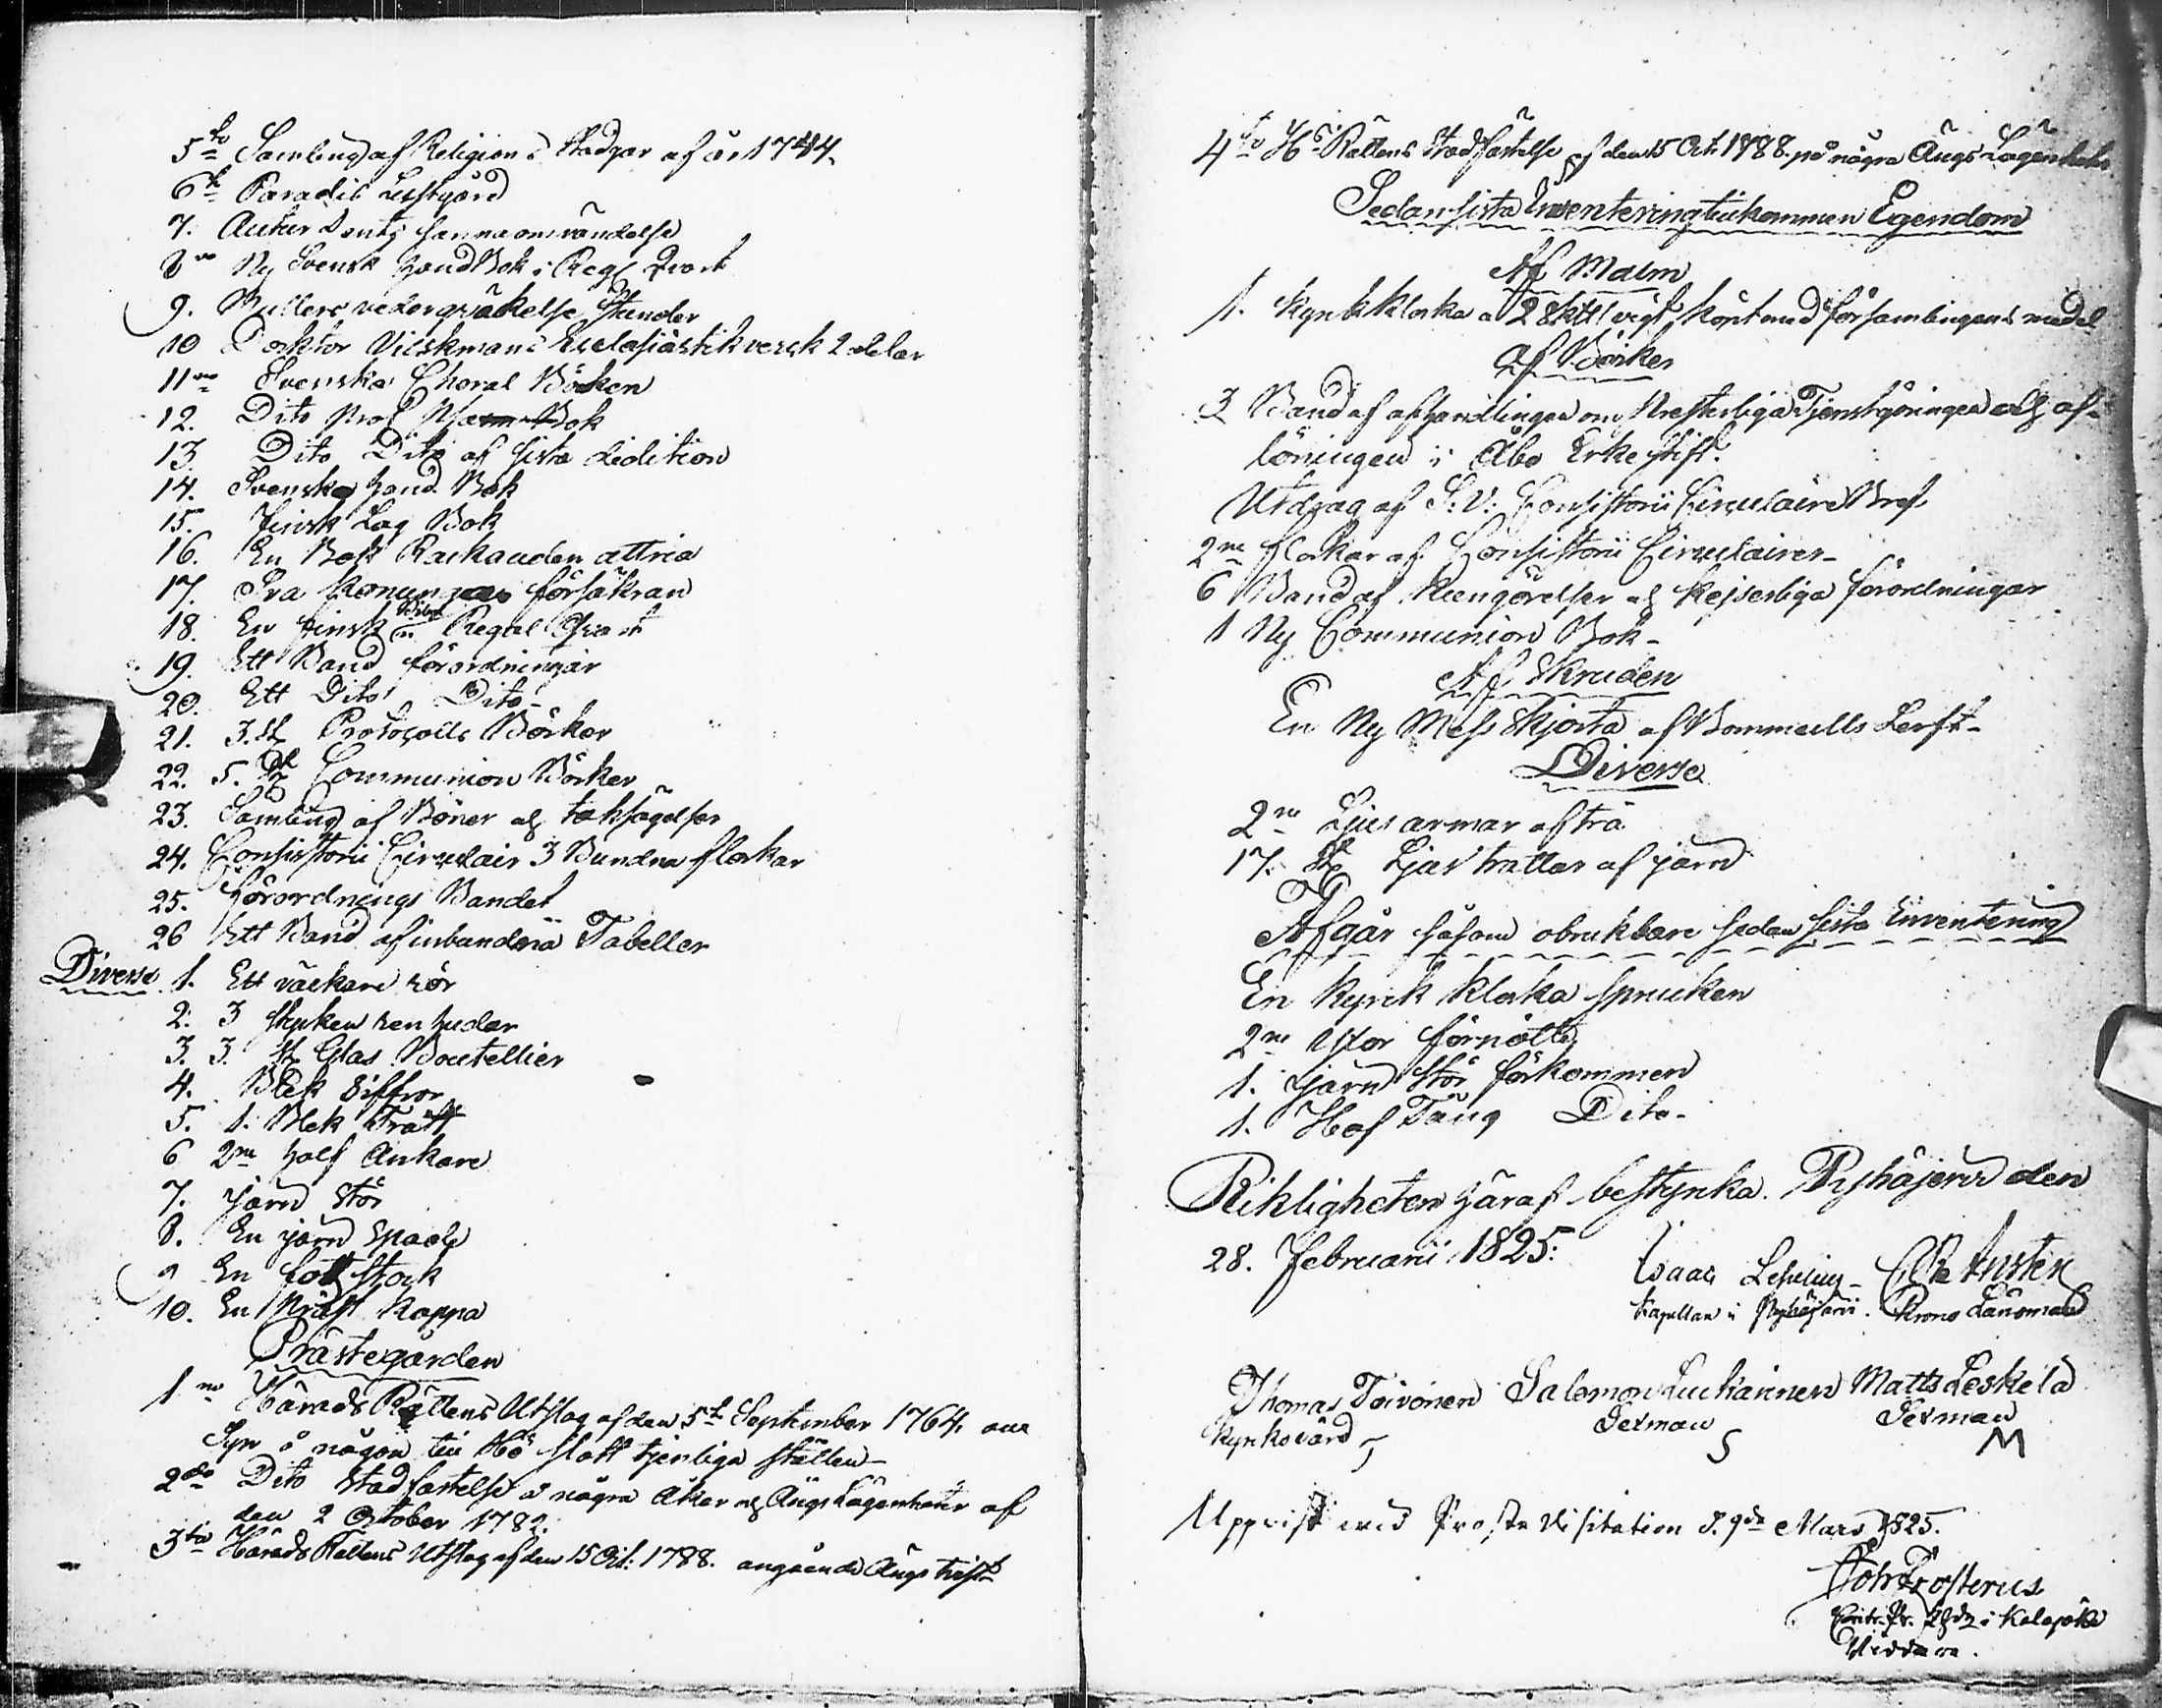 5to Samling af Religions Stadgar af år 1744.
6te Paradis Lustgård
7. Autor Dents sanna omvändelse
8va Ny Svensk Hand Bok i Regl Qvart
9. Mullers vederqväkelse Stunder
10 Docktor Vilskmans Eclesiastik verck 2 delar
11ma Svenska Choral Boken
12. Dito Prof Psalm Bok
13. Dito Dito af sista Edition
14. Svenska Hand Bok
15. Finsk Lag Bok
16. En Bok Rackauden attria
17. Sva Konungars försäkran
18. En finsk Bibel i Regal Qvart
19. Ett Band förordningar
20. Ett Dito Dito
21. 3. st Protocolls Böcker
22. 5. st Communion Böcker
23. Samling af Böner och taksägelser
24. Consistorii Circulair 3 Bundna flockar
25. Förordnings Bandet
26 Ett Band af inbundna Tabeller
Diverse 1. Ett väckare rör
2. 3 stycken ren hudar
3. 3. st Glas Boutellier
4. Blek Siffror
5. 1. Blek Tratt
6 2ne half Ankare
7. Järn Stör
8. En järn Spade
9 En fot stock
10. En Präst Kappa
Prästegården
1mo Härads Rättens Utslag af den 5te September 1764. om
Syn å någon till Hö slått tjenliga ställen
2do Dito Stadfästelse å några Åker och Ängs Lägenheter af
den 2 October 1782.
3tio Härads Rättens Utslag af den 15 Oct. 1788. angående Ängs tvist
4to Hs Rättens Stadfästelse af den 15 Oct 1788. på några Ängs Lägenheter
Sedan sista Inventering tillkommen Egendom
Af Malm
1. Kyrkklocka a 28 Ltt vigt köpt med församlingens medel
af Böcker
3 Band af afhandlingar om Presterliga Tjenstgöringen och af-
löningen i Åbo Erke stift.
Utdrag af S: V: Consistorii Circulaire Bref.
2ne flockar af Consistorii Circulairer
6 Band af Kungörelser och Kejserliga förordningar
1 Ny Communion Bok
Af Skruden
En Ny Mess Skjorta af Bommulls Lerft
Diverse
2ne Ljus armar af trä
17. st Ljus trattar af järn
Afgår såsom obrukbare sedan sista Inventering
En Kyrck klocka sprucken
2ne Yxor förnötte
1. Järn Stör förkommen
1. Hof Tång Dito
Riktigheten häraf bestyrka. Pyhäjervi den
28. Februarii 1825:
Isaac Lesulius
Kapellan i Pyhäjervi. Krono Länsman
Thomas Toivonen Salomon Luckarinen Matts Leskelä
Kyrkovärd Sexman Sexman
S M
Uppvist vid Proste Visitation d. 9de Mars 1825.
Joh Frosterus
Contr. Pr. i Kalajoki
Neddern.